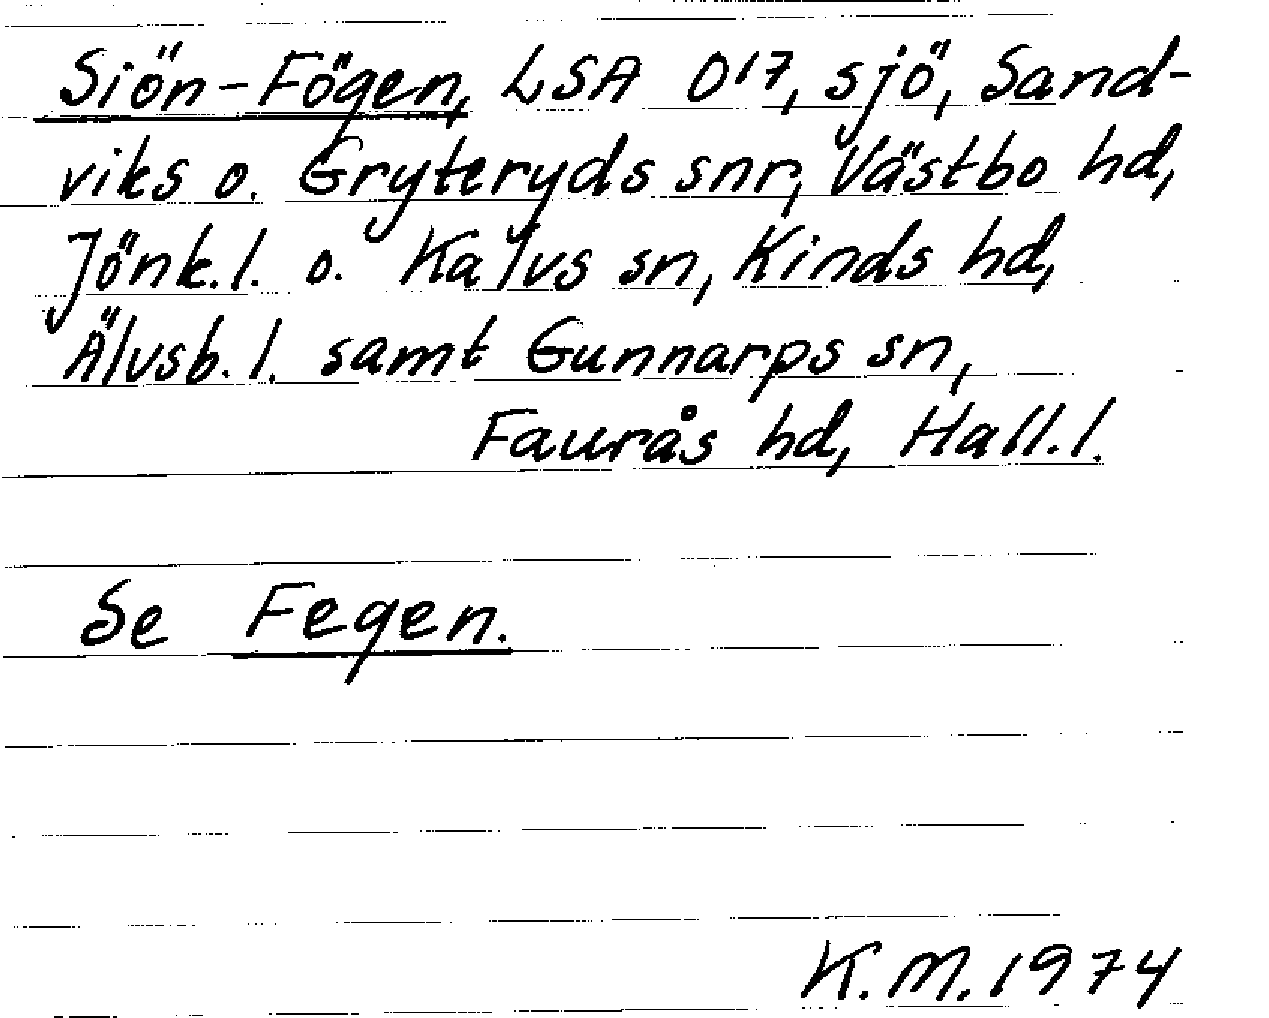 Siön-Fögen, LSA 017, sjö, Sand-
viks o. Gryteryds snr, Västbo hd,
Jönk.l. o. Kalvs sn, Kinds hd,
Älvsb.l. samt Gunnarps sn,
Faurås hd, Hall.l.
Se Fegen.
K.M.1974